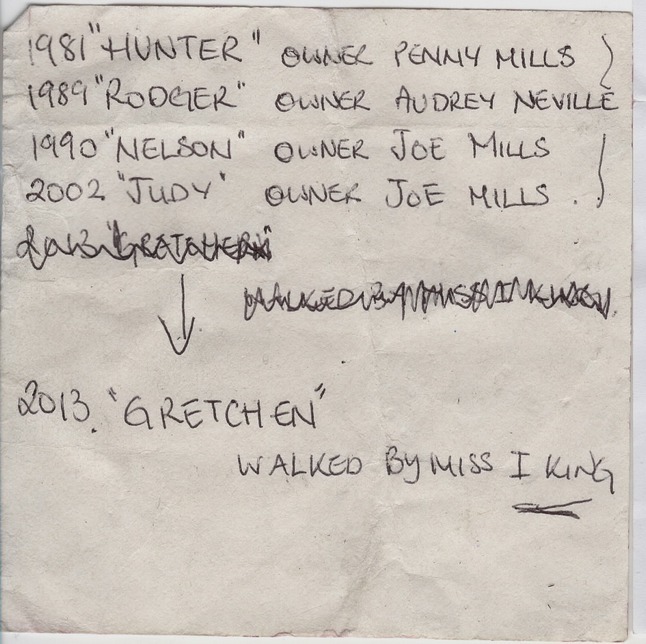 1981 "HUNTER" OWNER PENNY MILLS
1989 "RODGER" OWNER AUDREY NEVILLE
1990 "NELSON" OWNER JOE MILLS
2002 "JUDY" OWNER JOE MILLS.
2013 "GRETCHEN"
WALKED BY MISS I KING
2013. "GRETCHEN"
WALKED BY MISS I KING